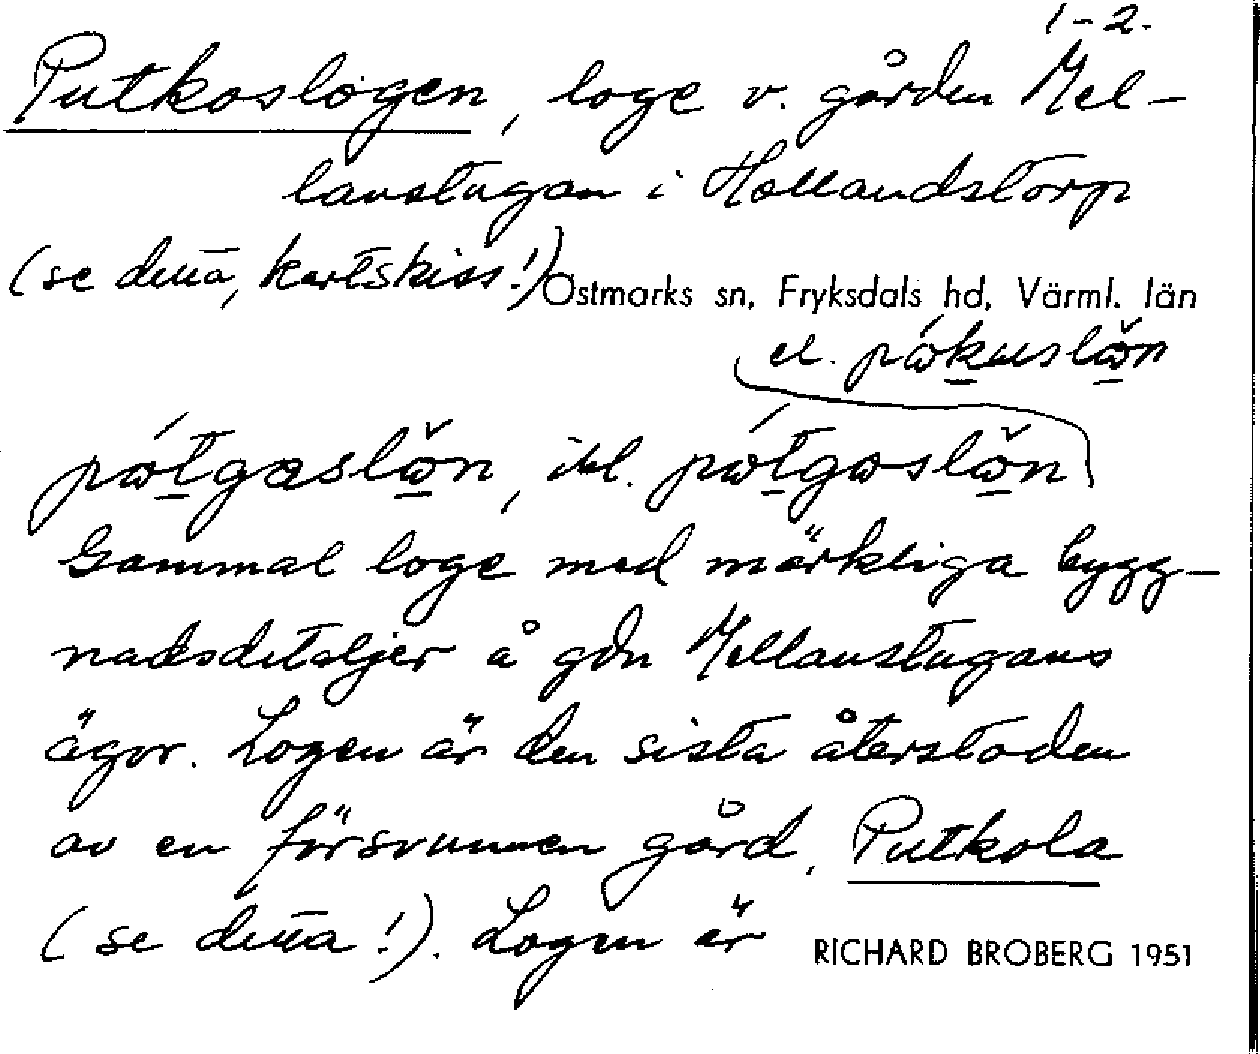 1-2.
Putkoslogen, loge v. gården Mel-
lanstugan i Hollandstorp
(se detta, kartskiss!)
Östmarks sn, Fryksdals hd, Värml. län
el. påkuslån
påtgaslån, ibl. påtgåslån
Gammal loge med märkliga bygg-
nadsdetaljer å gdn Mellanstugans
ägor. Logen är den sista återstoden
av en försvunnen gård, Putkola
(se detta!). Logen är
RICHARD BROBERG 1951